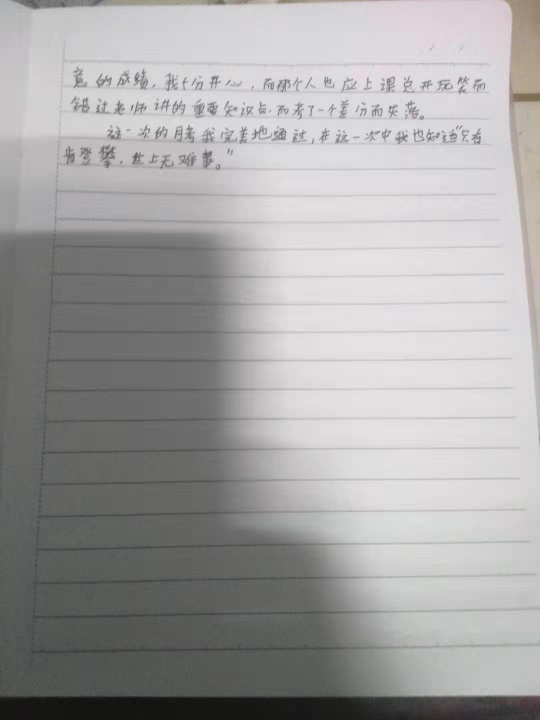 意的成绩，我十分开心，而那个人也应上课总开玩笑而
错过老师讲的重要知识点，而考了一个差分而失落。
这一次的月考我完美地通过，在这一次中我也知道“只有
肯登攀，世上无难事。”